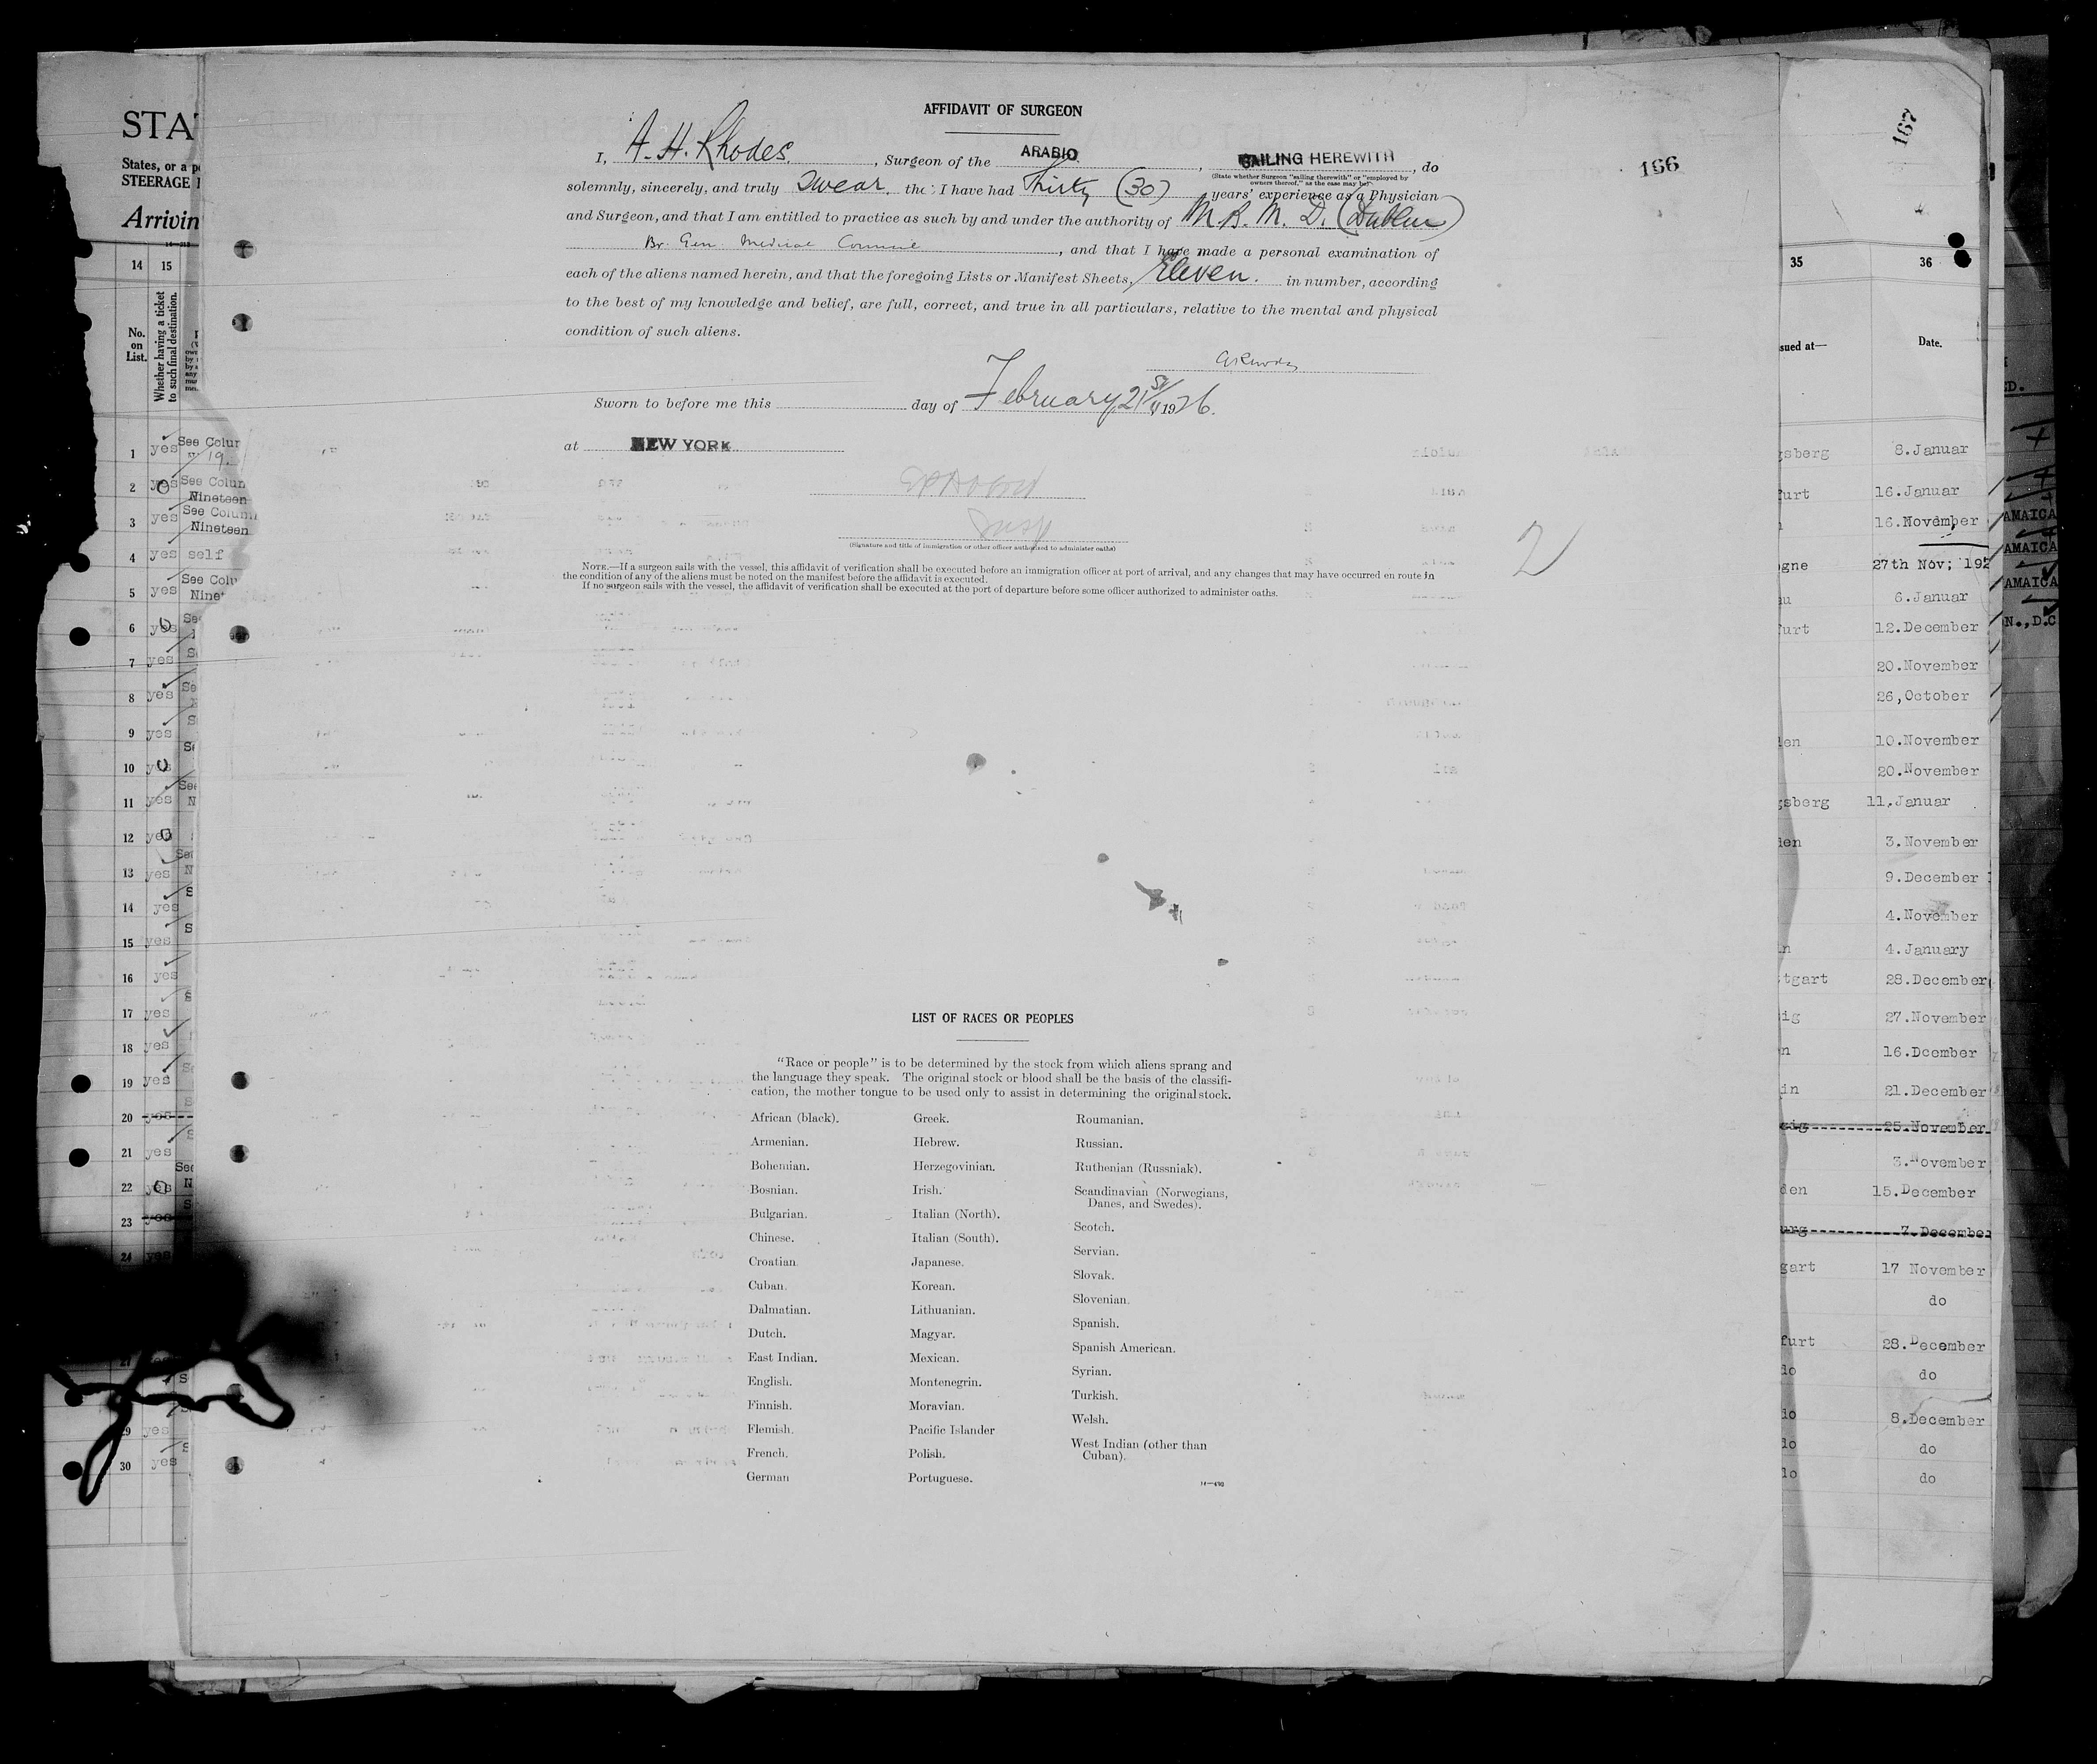 AFFIDAVIT OF SURGEON
I, A. H. Rhodes, Surgeon of the ARABIC, SAILING HEREWITH, do
(State whether Surgeon "sailing therewith" or "employed by
owners thereof," as the case may be)
solemnly, sincerely, and truly swear that I have had Thirty (30) years' experience as a Physician
and Surgeon, and that I am entitled to practice as such by and under the authority of M.B. M. D. (Dublin)
Br. Gen. Medical Council, and that I have made a personal examination of
each of the aliens named herein, and that the foregoing Lists or Manifest Sheets, Eleven. in number, according
to the best of my knowledge and belief, are full, correct, and true in all particulars, relative to the mental and physical
condition of such aliens.
Sworn to before me this day of February 21st 1926.
at NEW YORK
Insp
(Signature and title of immigration or other officer authorized to administer oaths)
NOTE.—If a surgeon sails with the vessel, this affidavit of verification shall be executed before an immigration officer at port of arrival, and any changes that may have occurred en route in
the condition of any of the aliens must be noted on the manifest before the affidavit is executed.
If no surgeon sails with the vessel, the affidavit of verification shall be executed at the port of departure before some officer authorized to administer oaths.
2
166
167
LIST OF RACES OR PEOPLES
"Race or people" is to be determined by the stock from which aliens sprang and
the language they speak. The original stock or blood shall be the basis of the classifi-
cation, the mother tongue to be used only to assist in determining the original stock.
African (black).
Armenian.
Bohemian.
Bosnian.
Bulgarian.
Chinese.
Croatian.
Cuban.
Dalmatian.
Dutch.
East Indian.
English.
Finnish.
Flemish.
French.
German
Greek.
Hebrew.
Herzegovinian.
Irish.
Italian (North).
Italian (South).
Japanese.
Korean.
Lithuanian.
Magyar.
Mexican.
Montenegrin.
Moravian.
Pacific Islander
Polish.
Portuguese.
Roumanian.
Russian.
Ruthenian (Russniak).
Scandinavian (Norwegians,
Danes, and Swedes).
Scotch.
Servian.
Slovak.
Slovenian.
Spanish.
Spanish American.
Syrian.
Turkish.
Welsh.
West Indian (other than
Cuban).
STA
States, or a p
STEERAGE
Arrivin
14 15
No.
on
List.
Whether having a ticket
to such final destination.
1 yes See Colum
19.
2 yes See Colum
Nineteen
3 yes See Column
Nineteen
4 yes self
5 yes See Colu
Ninet
6 yes
7 yes
8 yes
9 yes
10 yes
11 yes
12 yes
13 yes
14 yes
15 yes
16 yes
17 yes
18 yes
19 yes
20 yes
21 yes
22 yes
23 yes
24 yes
29 yes
30 yes
35 36
sued at— Date.
gsberg 8.Januar
furt 16.Januar
16.November
ogne 27th Nov; 192
au 6.Januar
furt 12.December
20.November
26,October
den 10.November
20.November
gsberg 11.Januar
den 3.November
9.December
4.November
in 4.January
ttgart 28.December
ig 27.November
n 16.Dcember
in 21.December
zig 25.November
3.November
den 15.December
urg 7.December
gart 17 November
do
furt 28.December
do do
do 8.December
do do
do do
ED.
AMAICA
AMAICA
AMAICA
N.,D.C